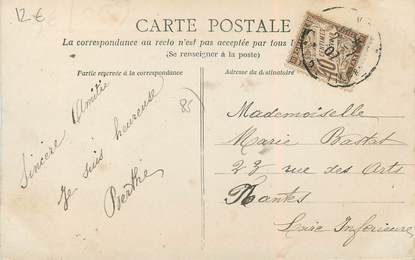 12 €
CARTE POSTALE
La correspondance au recto n'est pas acceptée par tous l
(Se renseigner à la poste)
Partie réservée à la correspondance
Adresse du destinataire
Sincère Amitié
Je suis heureuse
Berthe
85
Mademoiselle
Marie Bastat
22 rue des Arts
Nantes
Loire Inférieure